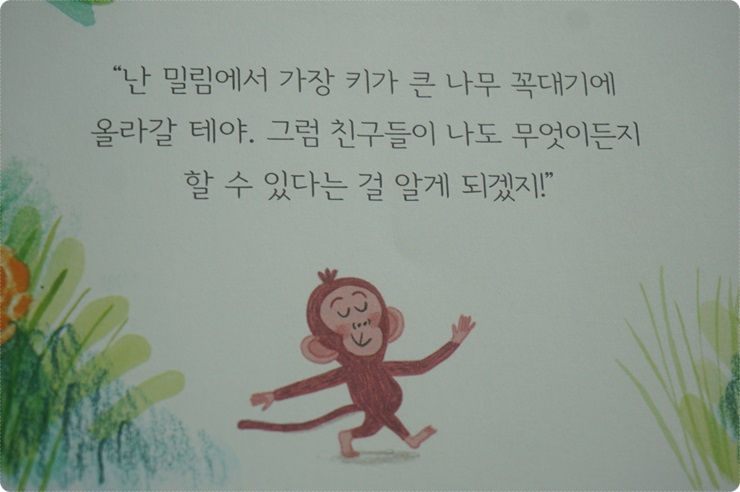 “난 밀림에서 가장 키가 큰 나무 꼭대기에
올라갈 테야. 그럼 친구들이 나도 무엇이든지
할 수 있다는 걸 알게 되겠지!”